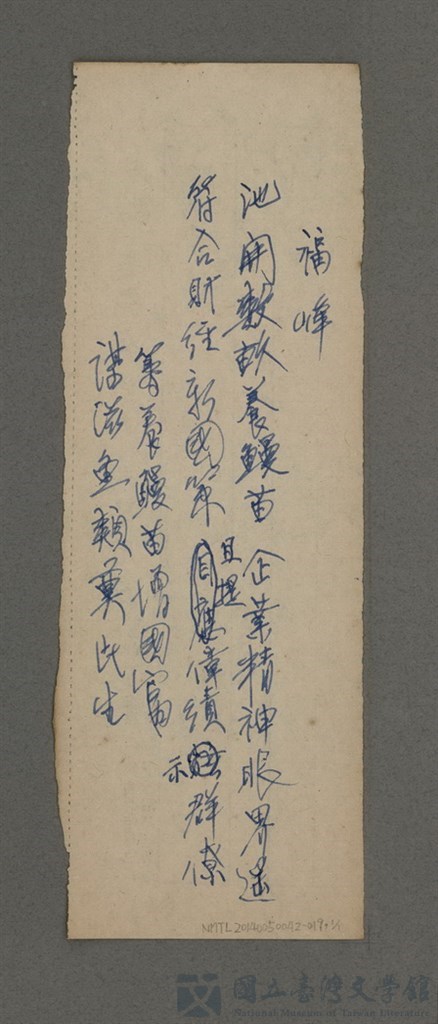 福峰
池開數畝養鰻苗 企業精神眼界遥
符合財經新國策 且提偉績示群僚
籌養鰻苗增國富
謀滋魚類奠民生
NMTL20140050042-019
國立臺灣文學館
National Museum of Taiwan Literature